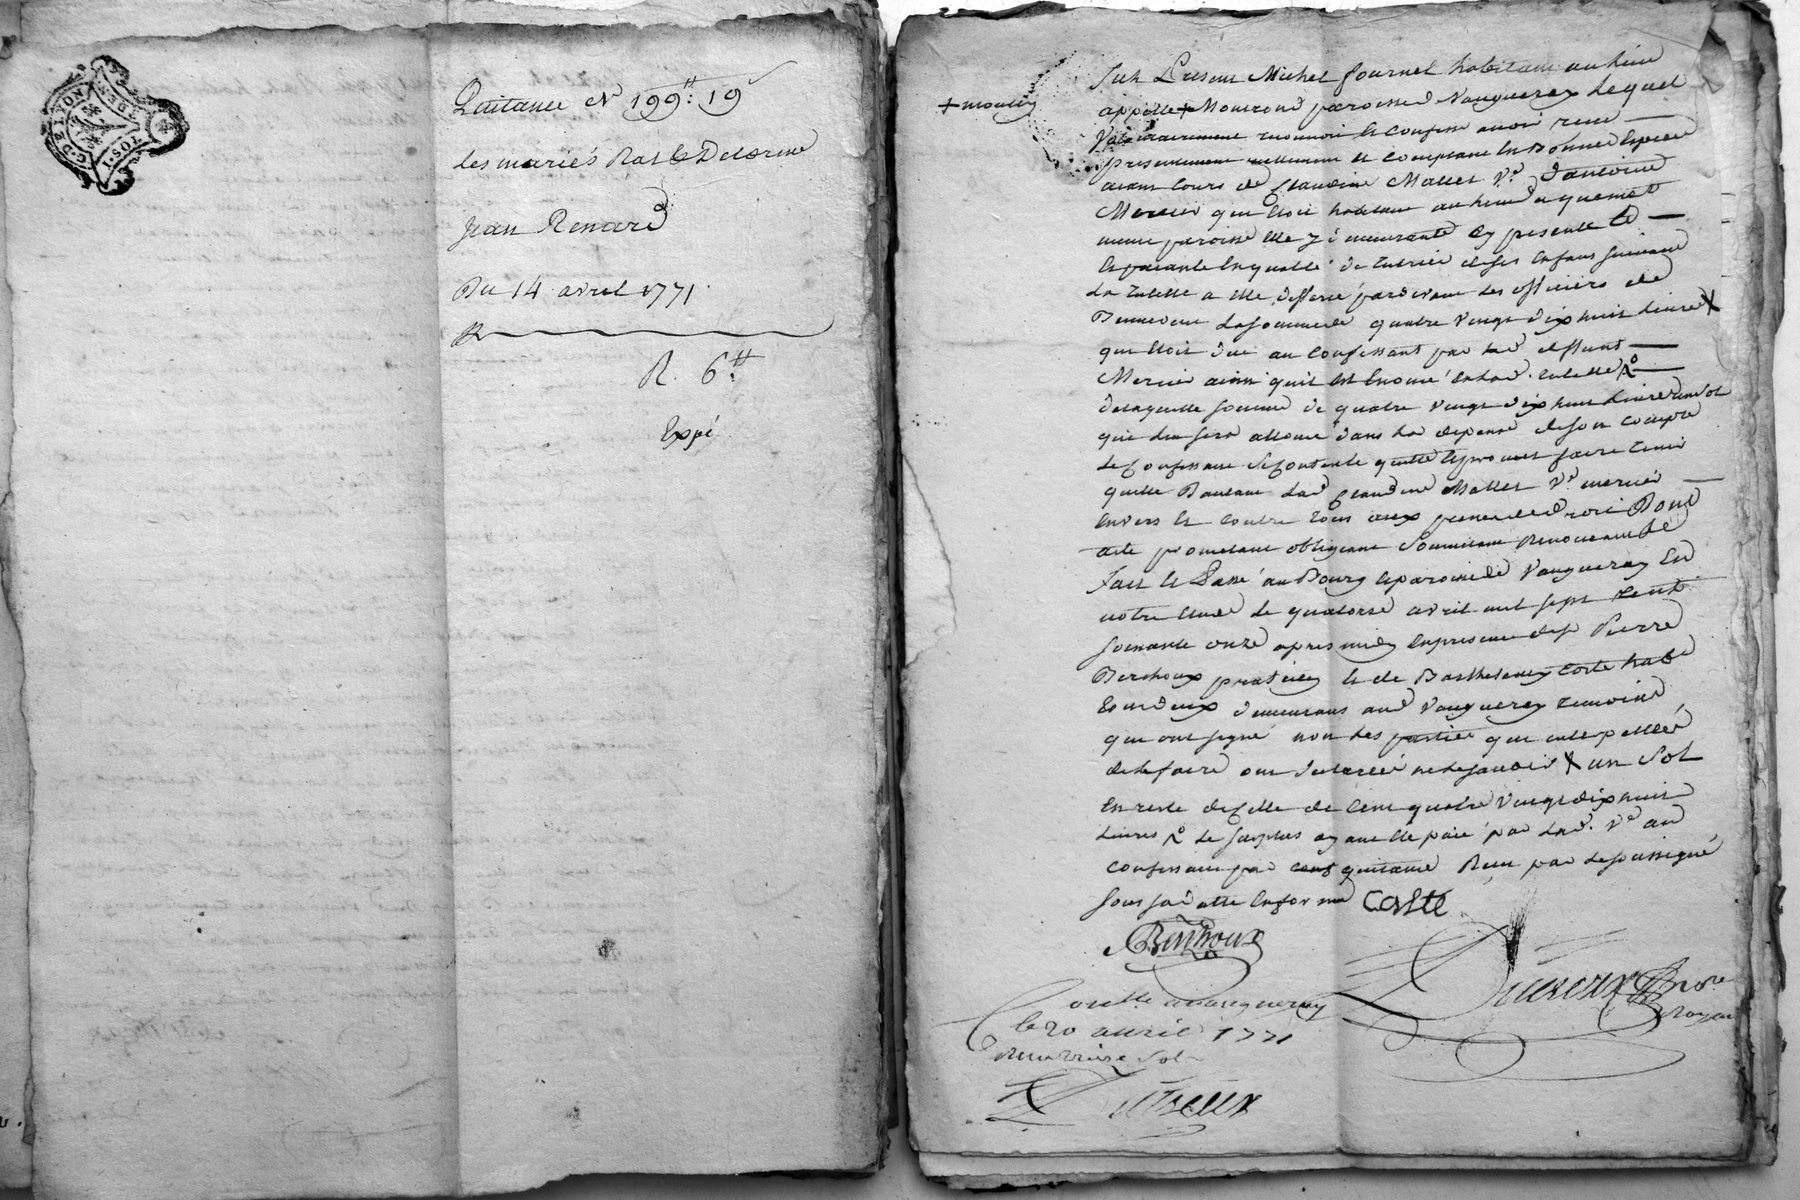 G. DE LYON
Quitance N 199₶ 19
Les mariés Rat & Delorme
Jean Renard
Du 14 avril 1771
R. 6₶
Expé
+ moulin
Fut Present Michel fournel habitant au lieu
appellé + Montrond paroisse de Vaugneray Lequel
Volontairement reconnoit et confesse avoir receu
presentement reellement et comptant en Bonnes Especes
aiant cours de Claudine Mallet Ve. d'antoine
Mercier qui étoit habitant au lieu
meme paroisse elle y demeurante cy presente et
acceptante en qualité de tutrice de ses enfans suivant
La tutelle a elle defferée pardevant Les officiers de
la somme de quatre vingt dix huit Livres X
qui étoit due au confessant par led. deffunt
Mercier ainsi qu'il est Enoncé en lad. tutelle
de laquelle somme de quatre vingt dix huit Livres un sol
qui lui sera allouée dans La depense de son compte
Le confessant se contente quitte et promet faire tenir
quitte Lad. Claudine Mallet Ve. mercier
envers et contre tous aux peines de droit Dont
acte promettant obligeant Soumettant Renonceant &c
fait et Passé au Bourg et paroisse de Vaugneray En
notre Etude Le quatorze avril mil sept cent
soixante onze apres midy en presence de sr. Pierre
Berthoux praticien et de Barthelemy Coste
tous deux demeurans aud. Vaugneray temoins
qui ont signé non Les parties qui interpellées
de le faire ont declaré ne le savoir X un sol
en reste de celle de Cent quatre vingt dix huit
Livres Le surplus ayant été paié par Lad. Ve. au
confessant par quitance Reçue par Le soussigné
sous sa datte en forme Coste
Berthoux
Nore
Royal
Controllé a vaugneray
le 20 avril 1771
Reçu treize sols